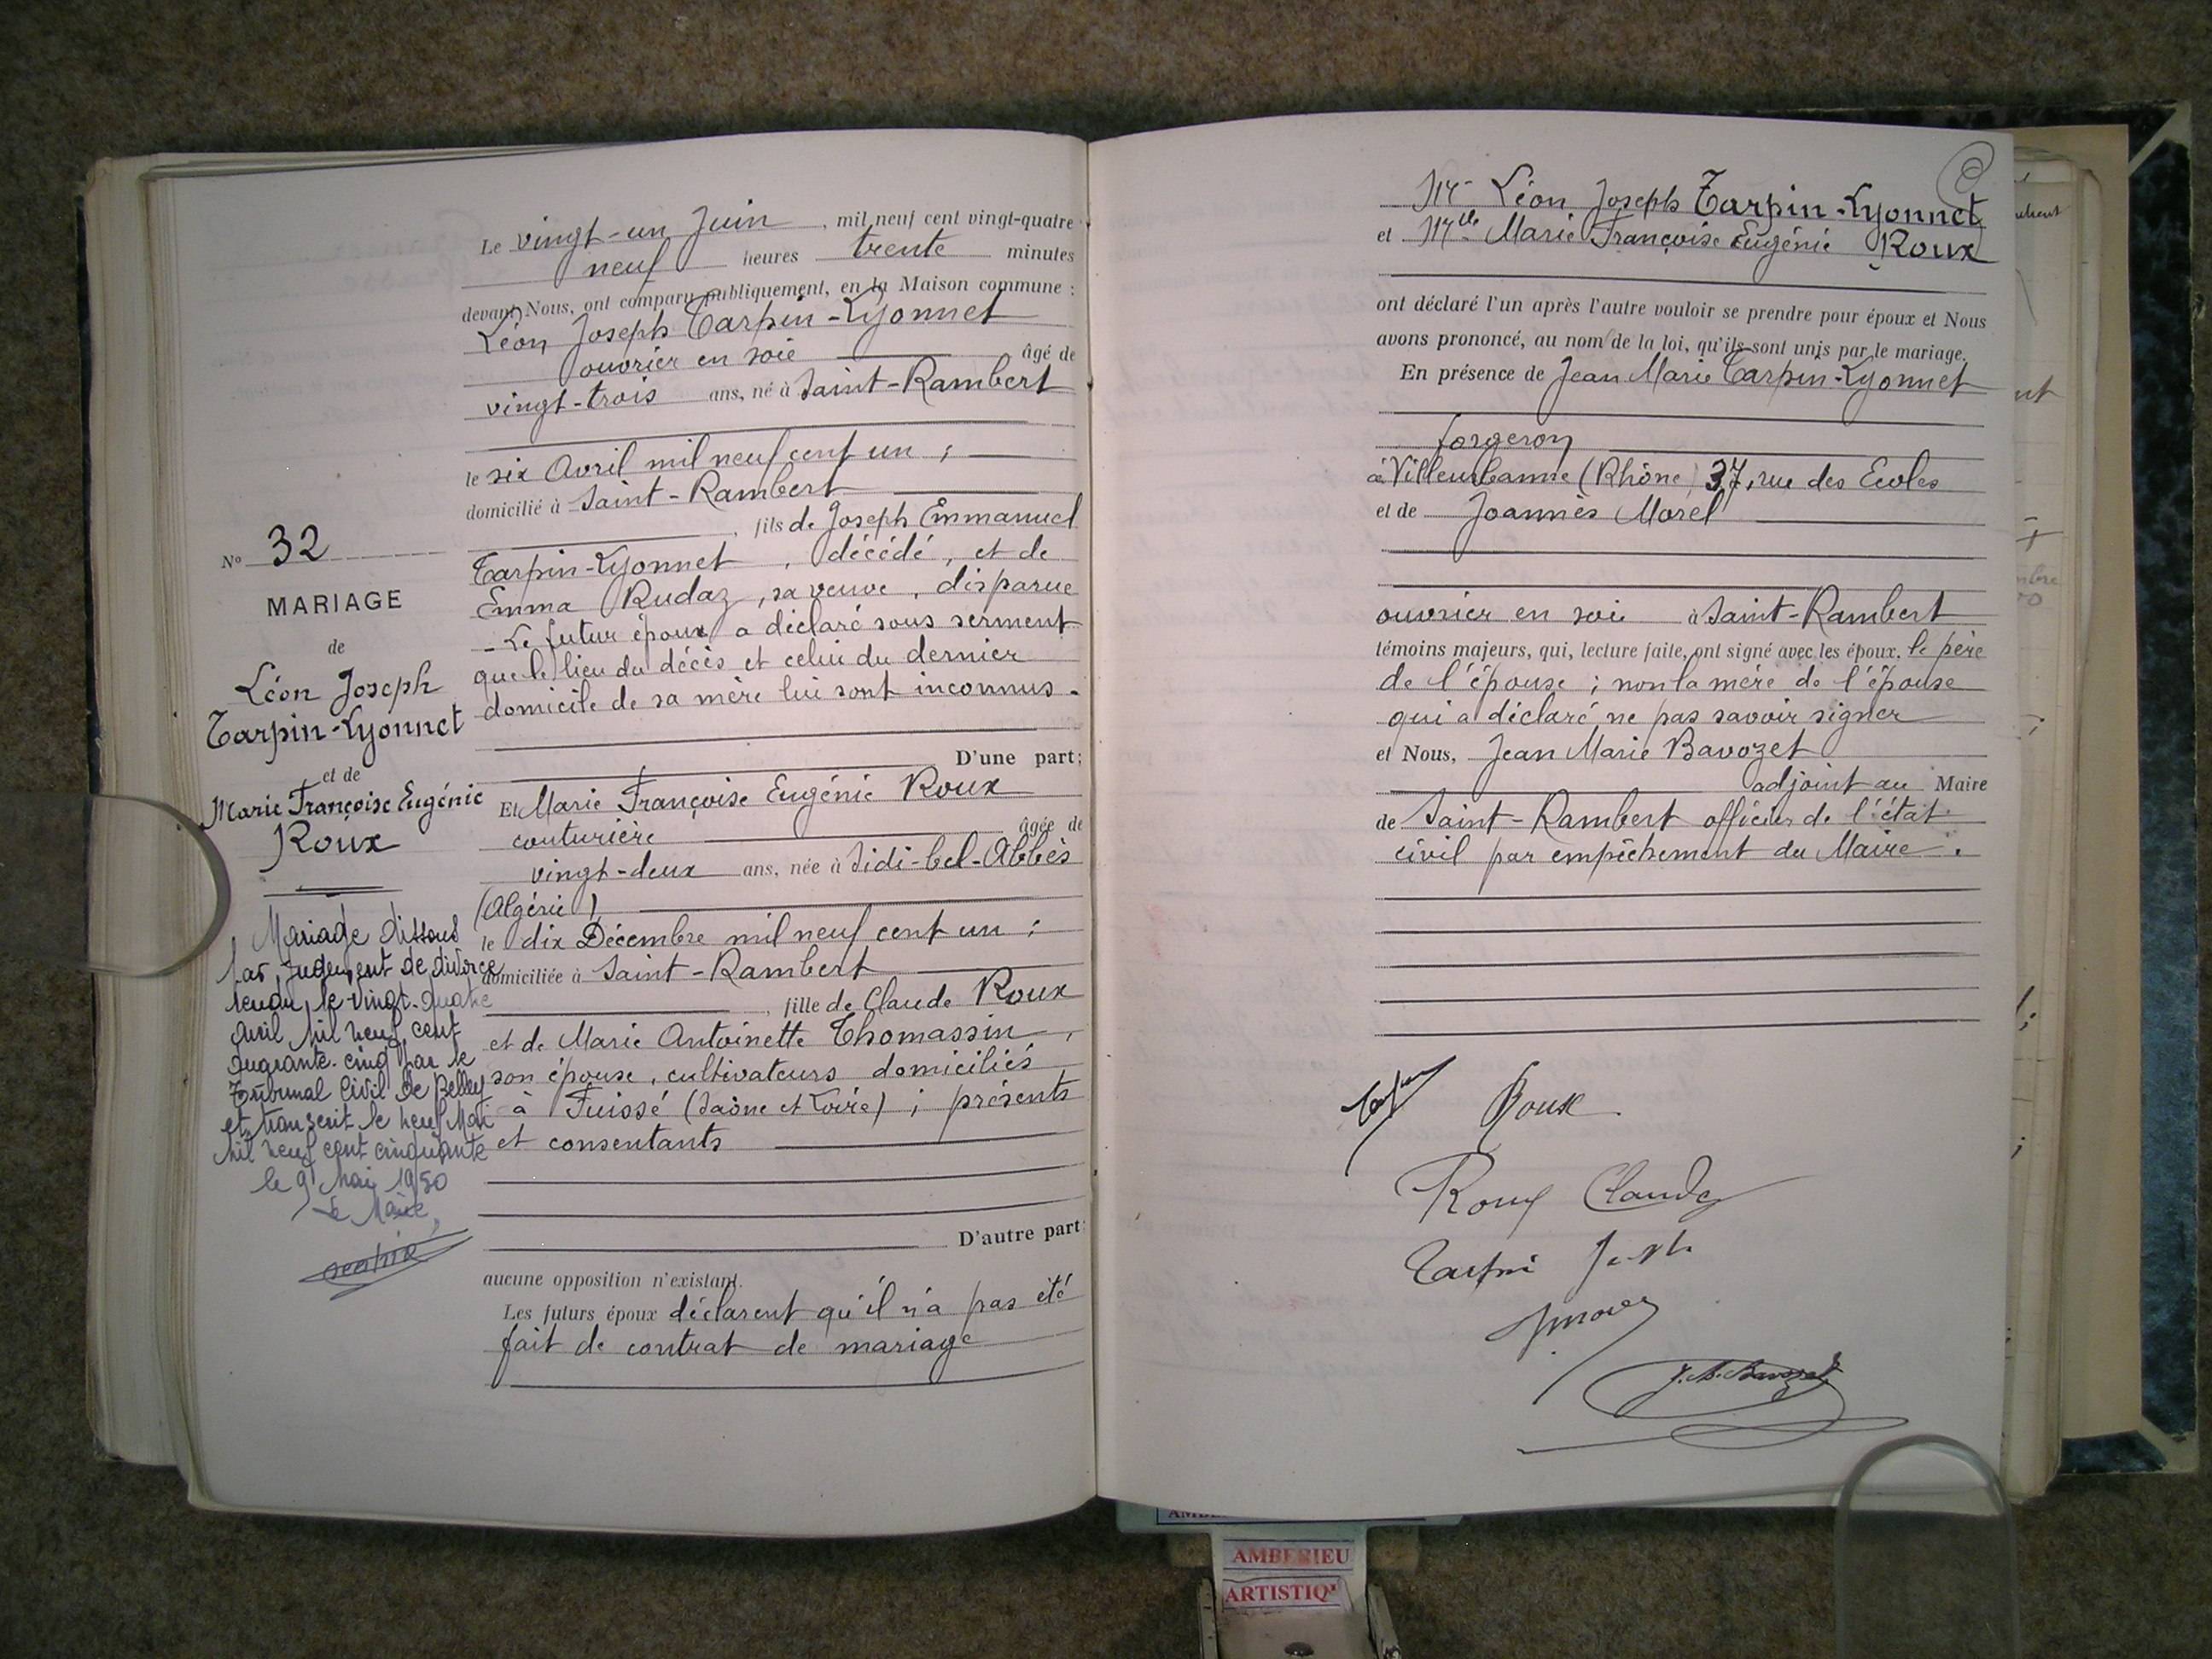 N° 32
MARIAGE
de
Léon Joseph
Tarpin-Lyonnet
et de
Marie Françoise Eugénie
Roux
Mariage dissous
par jugement de divorce
rendu le vingt-quatre
avril mil neuf cent
quarante-cinq par le
Tribunal Civil de Belley
et transcrit le neuf Mai
mil neuf cent cinquante
le 9 Mai 1950
Le Maire,
Le vingt-un Juin, mil neuf cent vingt-quatre
neuf heures trente minutes
devant Nous, ont comparu publiquement, en la Maison commune :
Léon Joseph Tarpin-Lyonnet
ouvrier en soie âgé de
vingt-trois ans, né à Saint-Rambert
le six Avril mil neuf cent un ;
domicilié à Saint-Rambert
, fils de Joseph Emmanuel
Tarpin-Lyonnet, décédé, et de
Emma Rudaz, sa veuve, disparue
- Le futur époux a déclaré sous serment
que le lieu du décès et celui du dernier
domicile de sa mère lui sont inconnus.
D'une part;
Et Marie Françoise Eugénie Roux
couturière âgée de
vingt-deux ans, née à Sidi-bel-Abbès
(Algérie)
le dix Décembre mil neuf cent un ;
domiciliée à Saint-Rambert
, fille de Claude Roux
et de Marie Antoinette Thomassin,
son épouse, cultivateurs domiciliés
à Fuissé (Saône et Loire) ; présents
et consentants
D'autre part;
aucune opposition n'existant.
Les futurs époux déclarent qu'il n'a pas été
fait de contrat de mariage
Mr Léon Joseph Tarpin-Lyonnet
et Mlle Marie Françoise Eugénie Roux
ont déclaré l'un après l'autre vouloir se prendre pour époux et Nous
avons prononcé, au nom de la loi, qu'ils sont unis par le mariage.
En présence de Jean Marie Tarpin-Lyonnet
forgeron
à Villeurbanne (Rhône) 37, rue des Ecoles
et de Joannès Morel
ouvrier en soie à Saint-Rambert
témoins majeurs, qui, lecture faite, ont signé avec les époux, le père
de l'épouse ; non la mère de l'épouse
qui a déclaré ne pas savoir signer
et Nous, Jean Marie Bavozet
adjoint au Maire
de Saint-Rambert officier de l'état
civil par empêchement du Maire.
Roux
Roux Claude
Tarpin
J. M. Bavozet
AMBERIEU
ARTISTIQ